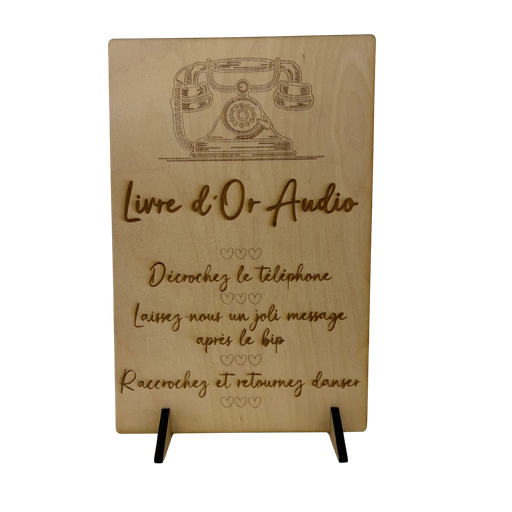 Livre d'Or Audio
Décrochez le téléphone
Laissez-nous un joli message
après le bip
Raccrochez et retournez danser